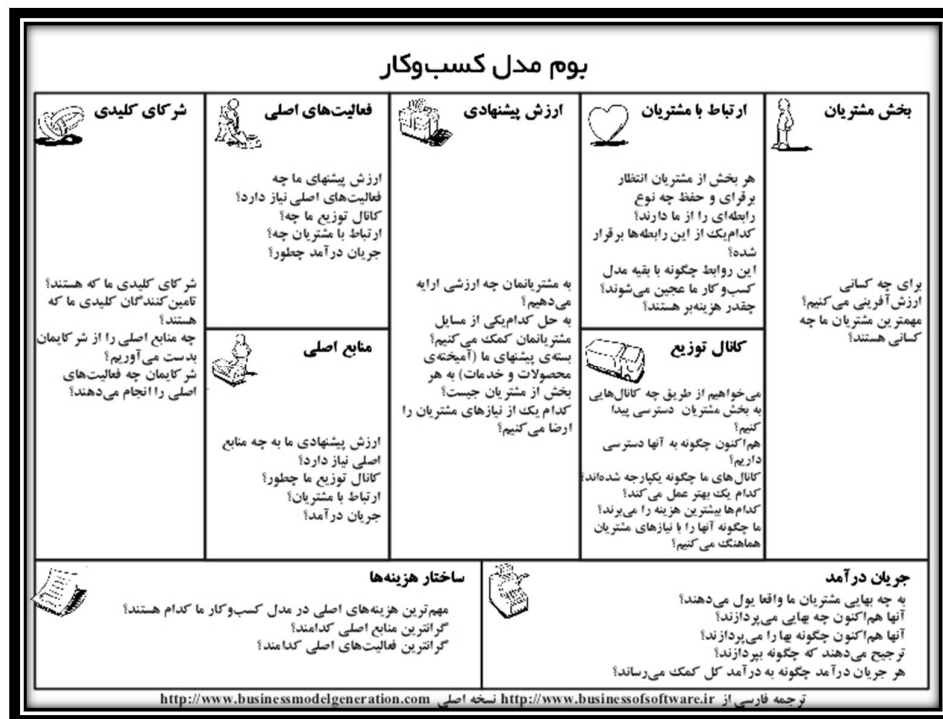 بوم مدل کسب‌وکار
بخش مشتریان
برای چه کسانی
ارزش‌آفرینی می‌کنیم؟
مهمترین مشتریان ما چه
کسانی هستند؟
ارتباط با مشتریان
هر بخش از مشتریان انتظار
برقرای و حفظ چه نوع
رابطه‌ای را از ما دارند؟
کدام‌یک از این رابطه‌ها برقرار
شده؟
این روابط چگونه با بقیه مدل
کسب‌وکار ما عجین می‌شوند؟
چقدر هزینه‌بر هستند؟
کانال توزیع
می‌خواهیم از طریق چه کانال‌هایی
به بخش مشتریان دسترسی پیدا
کنیم؟
هم‌اکنون چگونه به آنها دسترسی
داریم؟
کانال‌های ما چگونه یکپارچه شده‌اند؟
کدام یک بهتر عمل می‌کند؟
کدام‌ها بیشترین هزینه را می‌برند؟
ما چگونه آنها را با نیازهای مشتریان
هماهنگ می‌کنیم؟
ارزش پیشنهادی
به مشتریانمان چه ارزشی ارایه
می‌دهیم؟
به حل کدام‌یکی از مسایل
مشتریانمان کمک می‌کنیم؟
بسته‌ی پیشنهای ما (آمیخته‌ی
محصولات و خدمات) به هر
بخش از مشتریان چیست؟
کدام یک از نیازهای مشتریان را
ارضا می‌کنیم؟
فعالیت‌های اصلی
ارزش پیشنهای ما چه
فعالیت‌های اصلی نیاز دارد؟
کانال توزیع ما چه؟
ارتباط با مشتریان چه؟
جریان درآمد چطور؟
منابع اصلی
ارزش پیشنهادی ما به چه منابع
اصلی نیاز دارد؟
کانال توزیع ما چطور؟
ارتباط با مشتریان؟
جریان درآمد؟
شرکای کلیدی
شرکای کلیدی ما که هستند؟
تامین‌کنندگان کلیدی ما که
هستند؟
چه منابع اصلی را از شرکایمان
بدست می‌آوریم؟
شرکایمان چه فعالیت‌های
اصلی را انجام می‌دهند؟
جریان درآمد
به چه بهایی مشتریان ما واقعا پول می‌دهند؟
آنها هم‌اکنون چه بهایی می‌پردازند؟
آنها هم‌اکنون چگونه بها را می‌پردازند؟
ترجیح می‌دهند که چگونه بپردازند؟
هر جریان درآمد چگونه به درآمد کل کمک می‌رساند؟
ساختار هزینه‌ها
مهم‌ترین هزینه‌های اصلی در مدل کسب‌وکار ما کدام هستند؟
گرانترین منابع اصلی کدامند؟
گرانترین فعالیت‌های اصلی کدامند؟
ترجمه فارسی از http://www.businessofsoftware.ir نسخه اصلی http://www.businessmodelgeneration.com